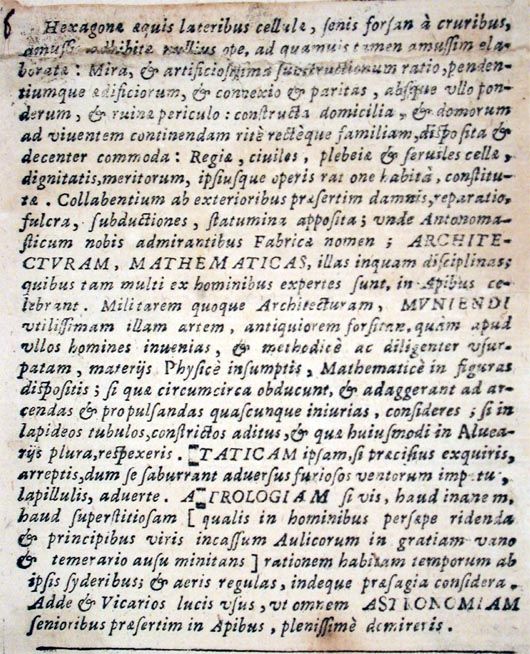 6 Hexagonæ æquis lateribus cellulæ, senis forsan à cruribus,
amussi adhibitæ nullius ope, ad quamuis tamen amussim ela-
boratæ : Mira, & artificiosissima substructionum ratio, penden-
tiumque ædificiorum, & connexio & paritas, absque vllo pon-
derum, & ruinæ periculo : constructa domicilia, & domorum
ad viuentem continendam ritè rectèque familiam, disposita &
decenter commoda : Regiæ, ciuiles, plebeiæ & seruiles cellæ,
dignitatis, meritorum, ipsiusque operis rat one habità, constitu-
tæ . Collabentium ab exterioribus præsertim damnis, reparatio,
fulcra, subductiones, statumina apposita ; vnde Antonoma-
sticum nobis admirantibus Fabricæ nomen ; ARCHITE-
CTVRAM, MATHEMATICAS, illas inquam disciplinas;
quibus tam multi ex hominibus expertes sunt, in Apibus ce-
lebrant. Militarem quoque Architecturam, MVNIENDI
vtilissimam illam artem, antiquiorem forsitan, quàm apud
vllos homines inuenias, & methodicè ac diligenter vsur-
patam, materijs Physicè insumptis, Mathematicè in figuras
dispositis ; si quæ circumcirca obducunt, & adaggerant ad ar-
cendas & propulsandas quascunque iniurias, consideres ; si in
lapideos tubulos, constrictos aditus, & quæ huiusmodi in Aluea-
rijs plura, respexeris. STATICAM ipsam, si præcisius exquiris,
arreptis, dum se saburrant aduersus furiosos ventorum imp tu,
lapillulis, aduerte. ASTROLOGIAM si vis, haud inanem,
haud superstitiosam [ qualis in hominibus persæpe ridenda
& principibus viris incassum Aulicorum in gratiam vano
& temerario ausu minitans ] rationem habitam temporum ab
ipsis syderibus ; & aeris regulas, indeque præsagia considera.
Adde & Vicarios lucis vsus, vt omnem ASTRONOMIAM
senioribus præsertim in Apibus, plenissimè demireris .